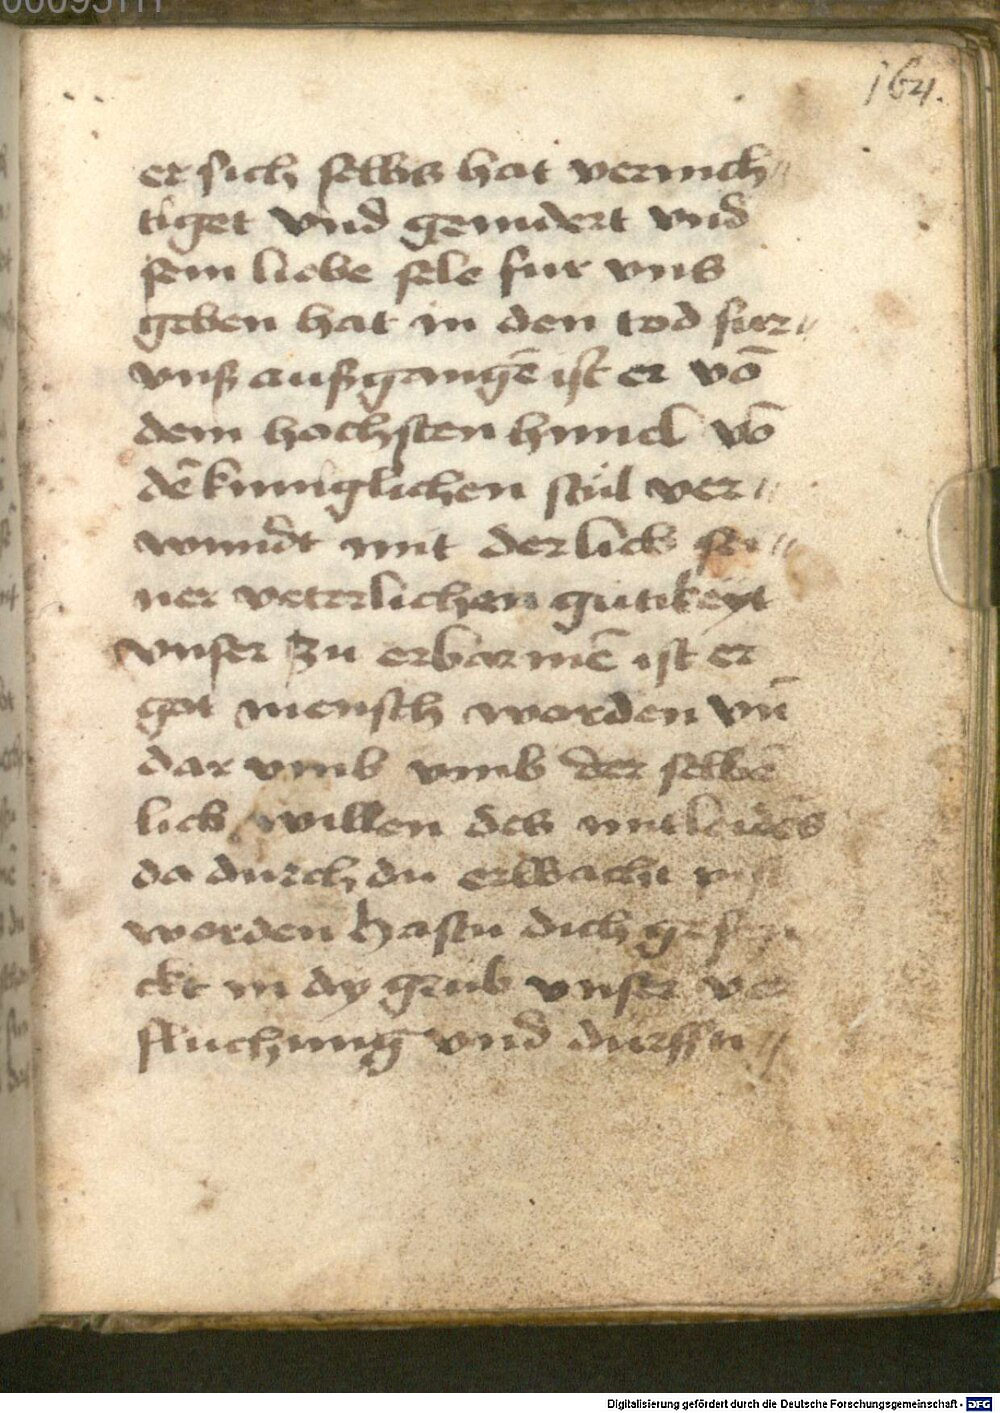 164.
er sich selbs hat vernich〃
tiget vnd gemidert vnd
sein liebe sele fur vns
geben hat in den tod fur〃
vnß außgangē ist er vō
dem hochsten himel vō
dē kuniglichen stůl ver〃
wundt mit der lieb sei〃
ner veterlichen gutikeyt
vnser zu erbarmē ist er
got mensch worden vn̄
dar vmb vmb der selbē
lieb willen des mitleidēs
da durch du erwacht
worden hastu dich gesen
ckt in dy grub vnser ver
fluchung vnd durffti〃
Digitalisierung gefördert durch die Deutsche Forschungsgemeinschaft - DFG